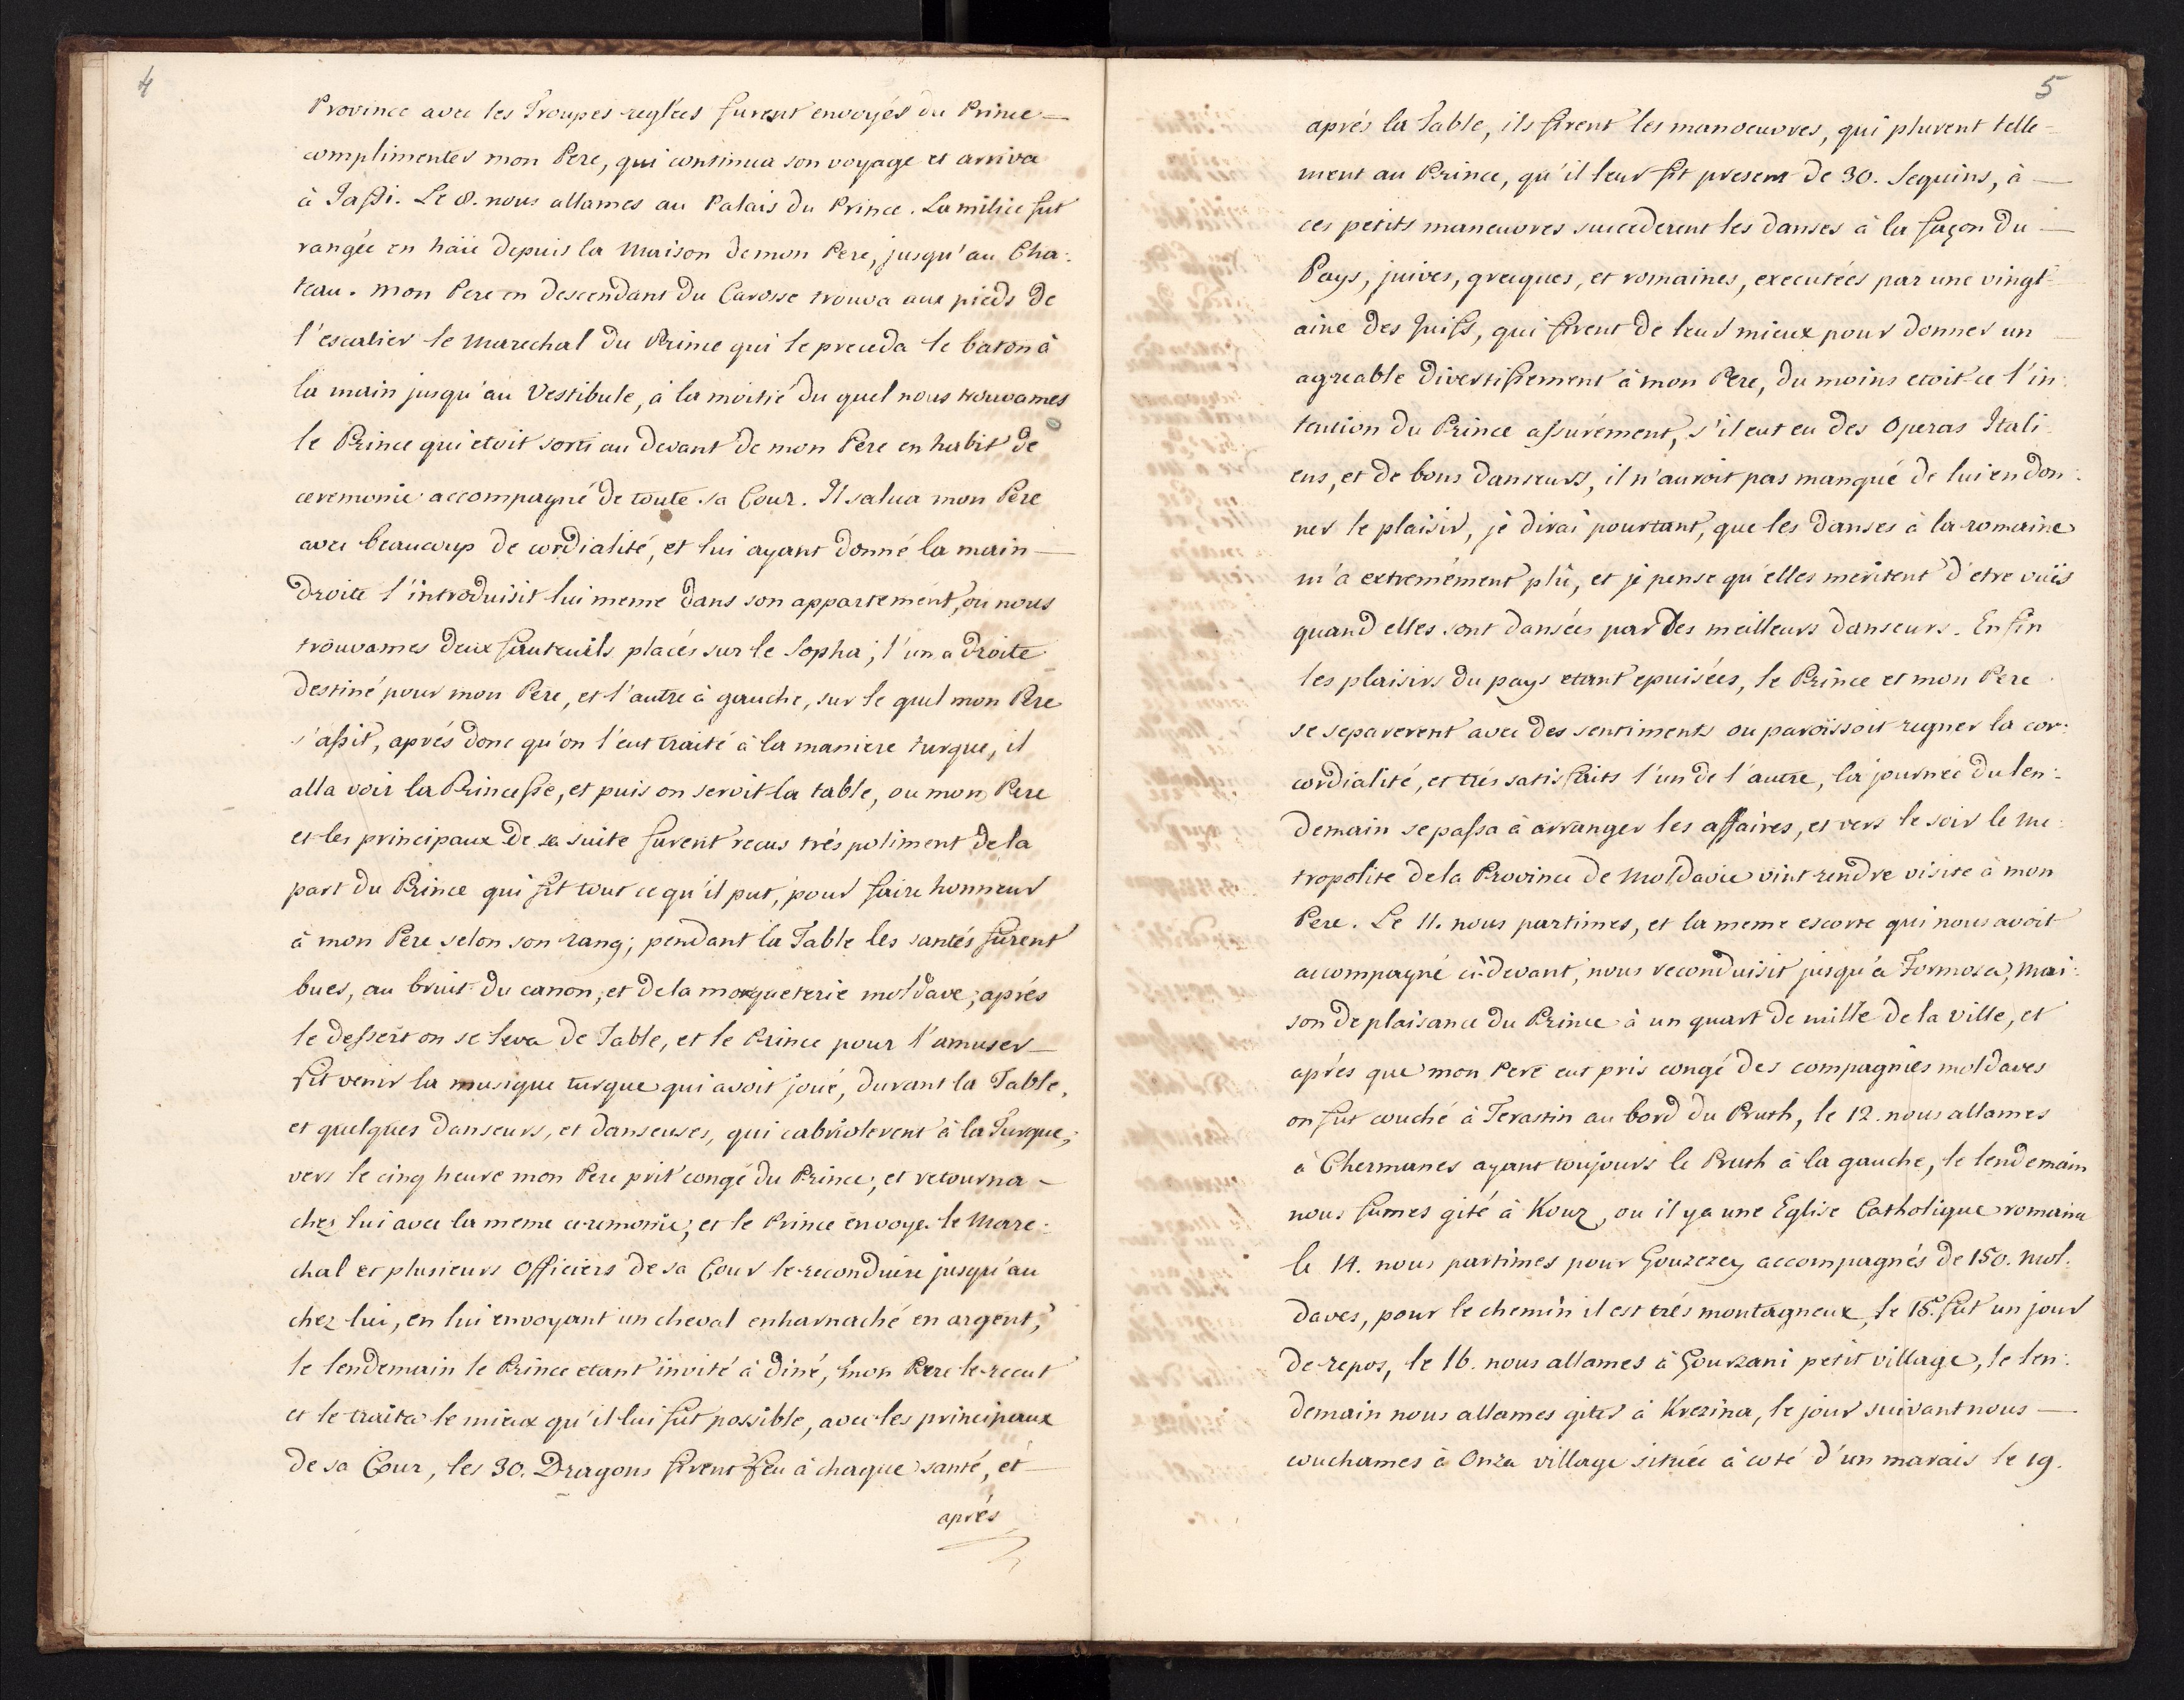 4
Province avec les Troupes reglées furent envoyés du Prince —
complimenter mon Pere, qui continua son voyage et arriva
à Jassi. Le 8. nous allames au Palais du Prince. La milice fut
rangée en haïe depuis la Maison de mon Pere, jusqu'au Cha:
teau. mon Pere en descendant du Carosse trouva aux pieds de
l'escalier le Marechal du Prince qui le preceda le baton à
la main jusqu'au Vestibule, à la moitié du quel nous trouvames
le Prince qui etoit sorti au devant de mon Pere en habit de
ceremonie accompagné de toute sa Cour. Il salua mon Pere
avec beaucoup de cordialité, et lui ayant donné la main —
droite l'introduisit lui meme dans son appartement, ou nous
trouvames deux fauteuils placés sur le Sopha; l'un a droite
destiné pour mon Pere, et l'autre à gauche, sur le quel mon Pere
s'assit, aprés donc qu'on l'eut traité à la maniere turque, il
alla voir la Princesse, et puis on servit la table, ou mon Pere
et les principaux de sa suite furent recus trés poliment de la
part du Prince qui fit tout ce qu'il put, pour faire honneur
à mon Pere selon son rang; pendant la Table les santés furent
bues, au bruit du canon, et de la mosqueterie moldave; aprés
le dessert on se leva de Table, et le Prince pour l'amuser —
fit venir la musique turque qui avoit joué, durant la Table,
et quelques danseurs, et danseuses, qui cabriolerent à la Turque;
vers le cinq heure mon Pere prit congé du Prince, et retourna —
chez lui avec la meme ceremonie; et le Prince envoye le Mare:
chal et plusieurs Officiers de sa Cour le reconduire jusqu'au
chez lui, en lui envoyant un cheval enharnaché en argent,
le lendemain le Prince etant invité à diné, mon Pere le recut
et le traita le mieux qu'il lui fut possible, avec les principaux
de sa Cour, les 30. Dragons firent feu à chaque santé, et —
aprés
5
aprés la Table, ils firent les manoeuvres, qui plurent telle-
ment au Prince, qu'il leur fit present de 30. Sequins, à —
ces petits maneuvres succederent les danses à la façon du —
Pays, juives, grecques, et romaines, executées par une vingt-
aine des Juifs, qui firent de leur mieux pour donner un
agreable divertissement à mon Pere, du moins etoit-ce l'in:
tention du Prince assurément, s'il eut eu des Operas Itali
ens, et de bons danseurs, il n'auroit pas manqué de lui en don:
ner le plaisir, je dirai pourtant, que les danses à la romaine
m'a extremément plû, et je pense qu'elles meritent d'etre vuës
quand elles sont dansées par des meilleurs danseurs. Enfin
les plaisirs du pays etant epuisées, le Prince et mon Pere
se separerent avec des sentiments ou paroissoit regner la cor:
cordialité, et trés satisfaits l'un de l'autre, la journée du len:
demain se passa à arranger les affaires, et vers le soir le me:
tropolite de la Province de Moldavie vint rendre visite à mon
Pere. Le 11. nous partimes, et la meme escorte qui nous avoit
accompagné ci-devant, nous reconduisit jusqu'a Formosa, mai:
son de plaisance du Prince à un quart de mille de la ville, et
aprés que mon Pere eut pris congé des compagnies moldaves
on fut couché à Terastin au bord du Pruth, le 12. nous allames
à Chermanes ayant toujours le Pruth à la gauche, le lendemain
nous fumes gité à Kouz, ou il y a une Eglise Catholique romaine
le 14. nous partimes pour Gouzezey accompagnés de 150. Mol.
daves, pour le chemin il est trés montagneux, le 15. fut un jour
de repos, le 16. nous allames à Gourzani petit village, le len:
demain nous allames giter à Krezina, le jour suivant nous —
couchames à Onza village située à coté d'un marais le 19.